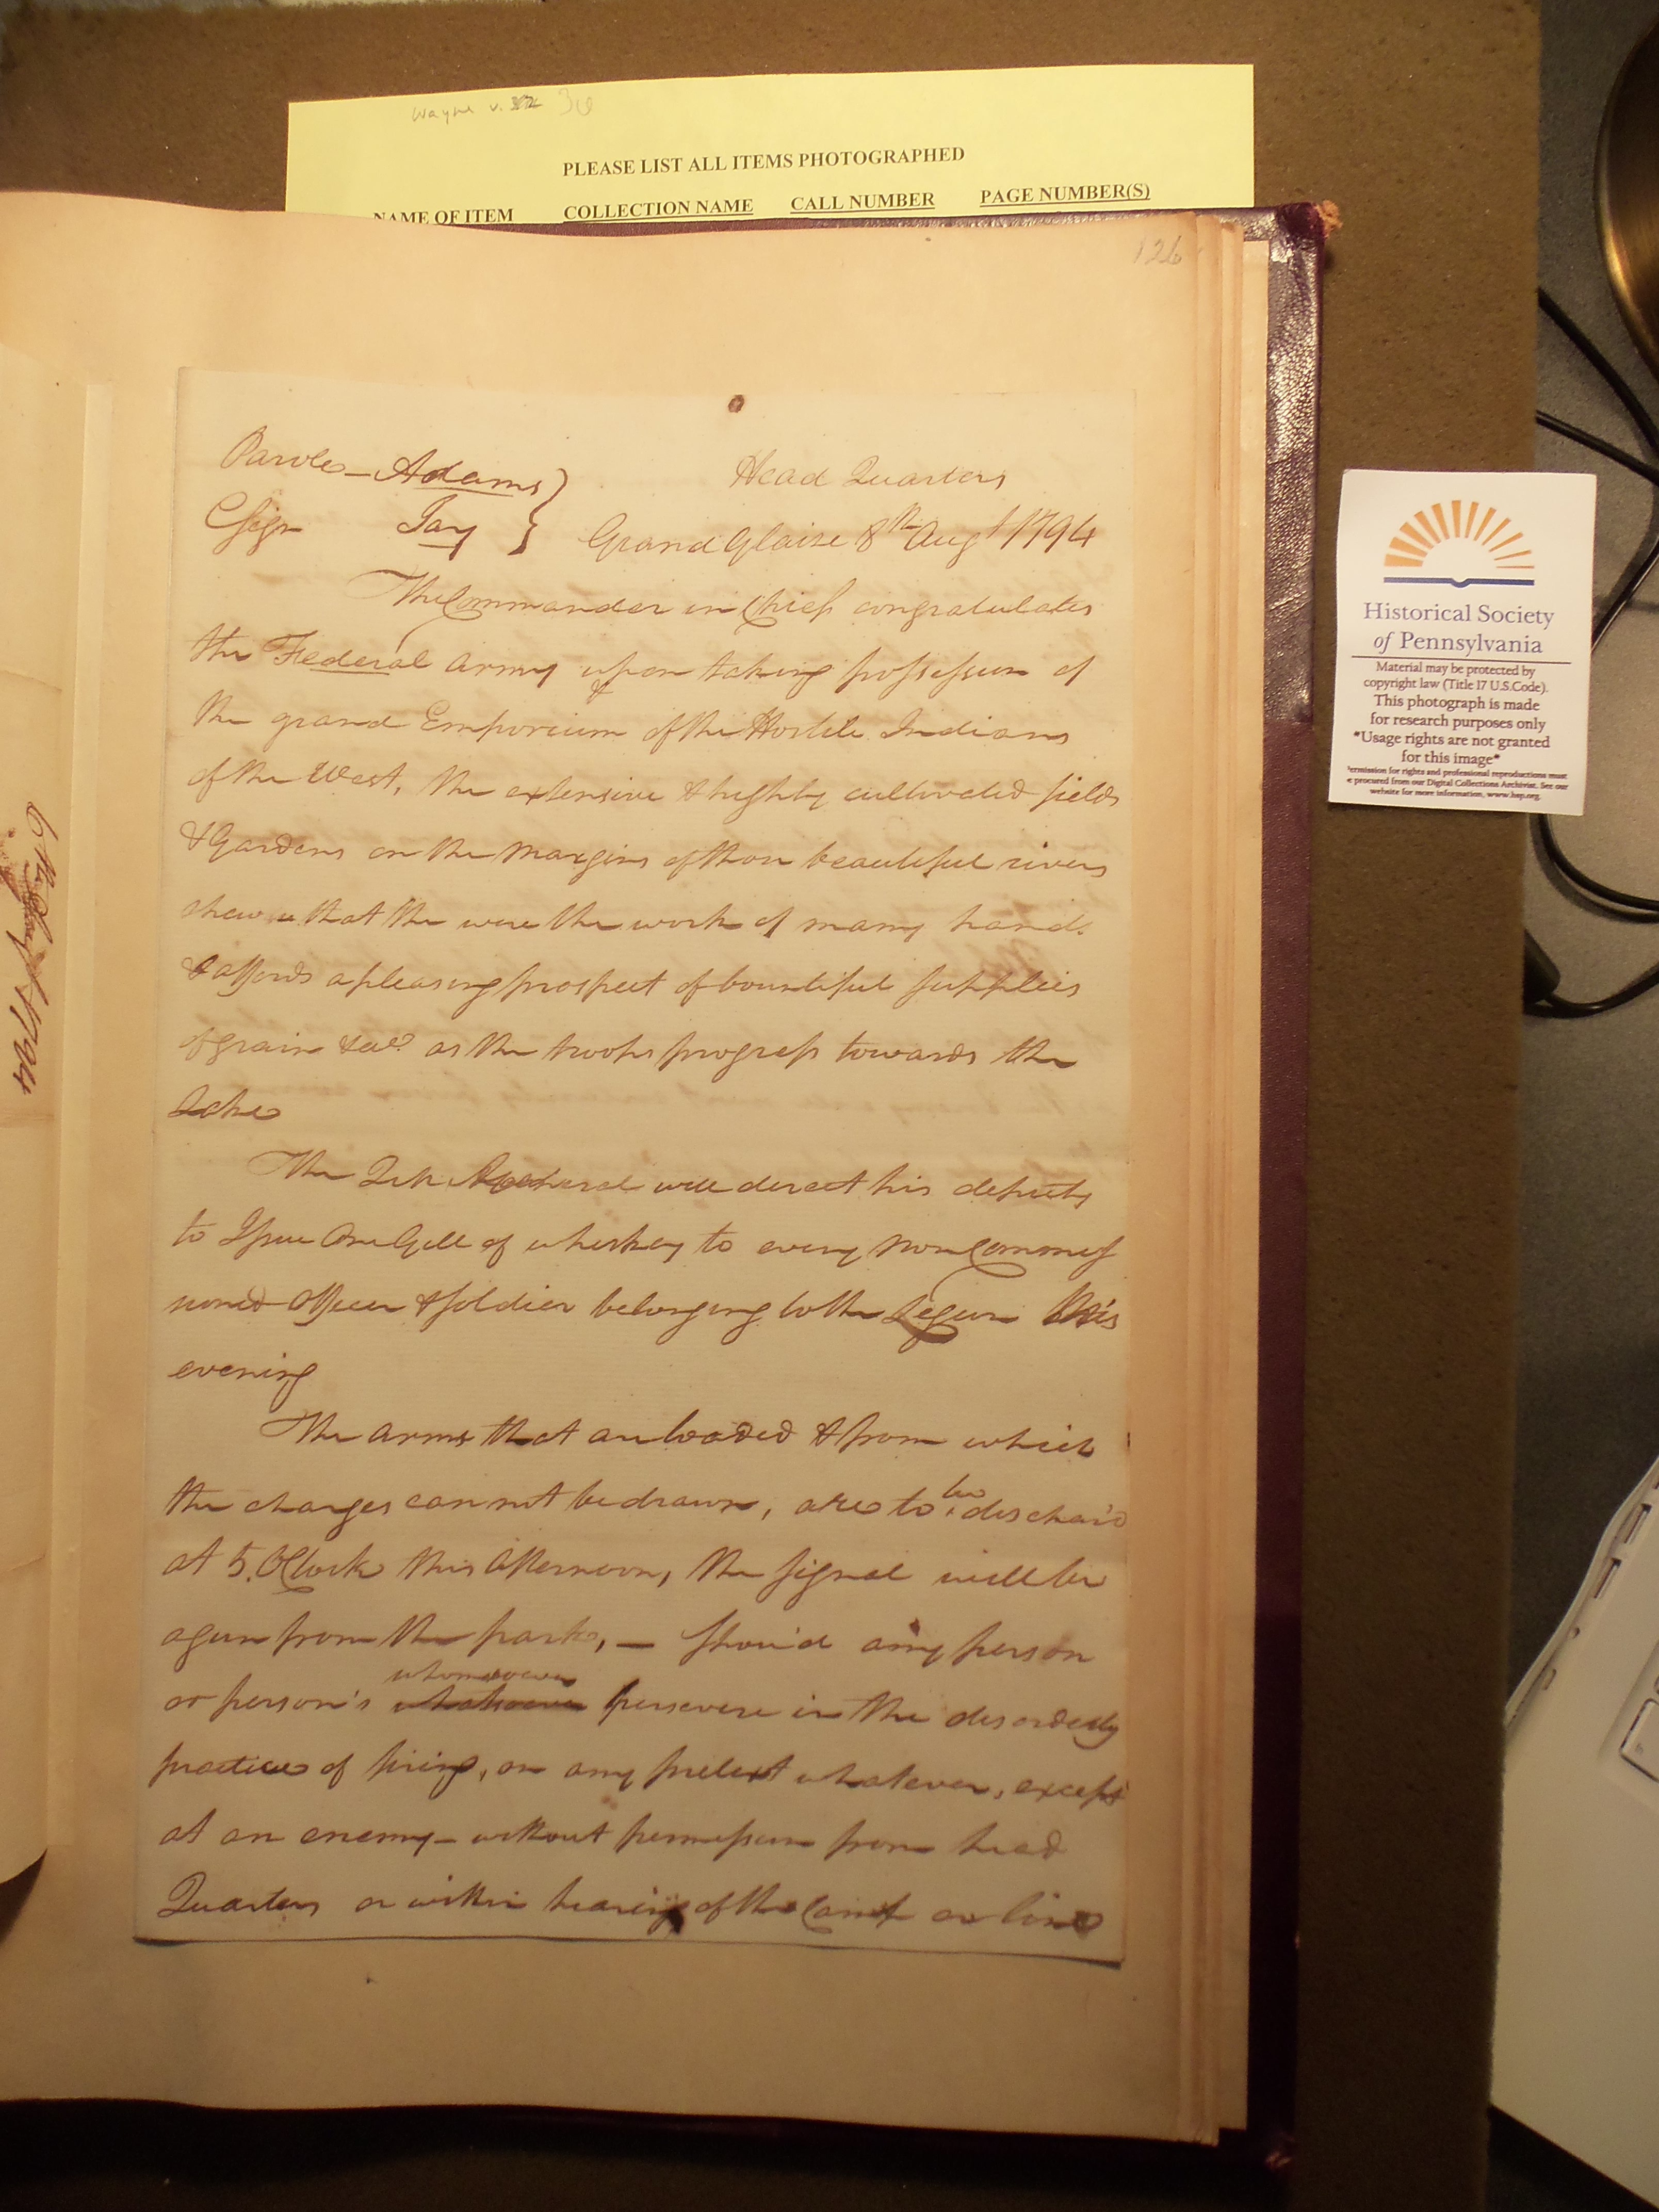 Wayne v. 30
PLEASE LIST ALL ITEMS PHOTOGRAPHED
NAME OF ITEM COLLECTION NAME CALL NUMBER PAGE NUMBER(S)
126
Parole - Adams }
Head Quarters
CSign Jay }
Grand Glaize 8th Augt 1794
The Commander in Chief congratulates
the Federal Army upon taking possession of
the grand Emporium of the Hostile Indians
of the West, the extensive & highly cultivated fields
& Gardens on the Margins of those beautiful rivers
shew that the were the work of many hands
& affords a pleasing prospect of bountiful supplies
of grain &ca. as the troops progress towards the
Lake
The Qr Mr General will direct his deputy
to Issue One Gill of whiskey to every non Commis
sioned officer & soldier belonging to the Legion this
evening
The arms that are loaded & from which
the charges can not be drawn, are to be dischar'd
at 5. OClock this afternoon, the signal will be
a gun from the park, — shou'd any person
or person's whatsoever whomsoever persevere in the disorderly
practice of firing, on any pretext whatever, except
at an enemy - without permission from head
Quarters or within hearing of the Camp or line
1794
Historical Society
of Pennsylvania
Material may be protected by
copyright law (Title 17 U.S.Code).
This photograph is made
for research purposes only
*Usage rights are not granted
for this image*
*Permission for rights and professional reproductions must
be procured from our Digital Collections Archivist. See our
website for more information, www.hsp.org.